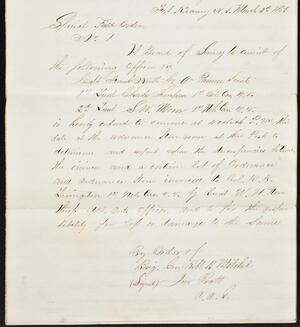 Fort Kearny N.T. March 5th 1865
Special Field Orders
No 1
A Board of Survey to consist of
the following Officers viz
Capt Frank
1st Lieut Charles
2d Lieut 1st Neb Cav
is hereby ordered to convene at o'clock this
date at the ordnance Store room at this Post to
determine and report upon the discrepancies between
the invoice and a certain lot of Ordnance
and Ordnance Stores invoiced to Col. R. R.
Livingston 1st Neb. Cav. by Lieut W. H.
Officer and to fix the respon
sibility for loss or damage to the Same
By Order of
Brig. Gen Robt B Mitchel
(Signed) Jno Pratt
A.A.G.